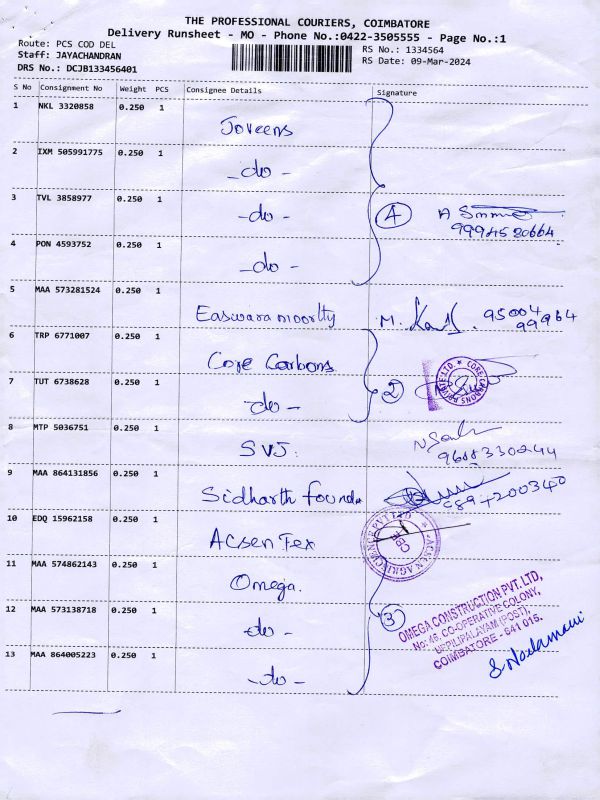 THE PROFESSIONAL COURIERS, COIMBATORE
Delivery Runsheet - MO - Phone No.:0422-3505555 - Page No.:1
Route: PCS COD DEL
Staff: JAYACHANDRAN
DRS No.: DCJB133456401
RS No.: 1334564
RS Date: 09-Mar-2024
S No Consignment No Weight PCS Consignee Details Signature
1 NKL 3320858 0.250 1
Joveens
2 IXM 505991775 0.250 1
- do -
3 TVL 3858977 0.250 1
- do - 4
9994520664
4 PON 4593752 0.250 1
- do -
5 MAA 573281524 0.250 1
Easwaramoorthy M. 95004
99964
6 TRP 6771007 0.250 1
Core Carbons
7 TUT 6738628 0.250 1
- do - 2 CORE CARBONS PRIVATE LTD.
8 MTP 5036751 0.250 1
SVJ.
9688330244
9 MAA 864131856 0.250 1
Sidharth Found
10 EDQ 15962158 0.250 1
Acsen Tex CBE
11 MAA 574862143 0.250 1
Omega.
12 MAA 573138718 0.250 1
- do - 3
OMEGA CONSTRUCTION PVT. LTD,
No: 46, CO-OPERATIVE COLONY,
UPPILIPALAYAM (POST),
COIMBATORE - 641 015.
13 MAA 864005223 0.250 1
- do -